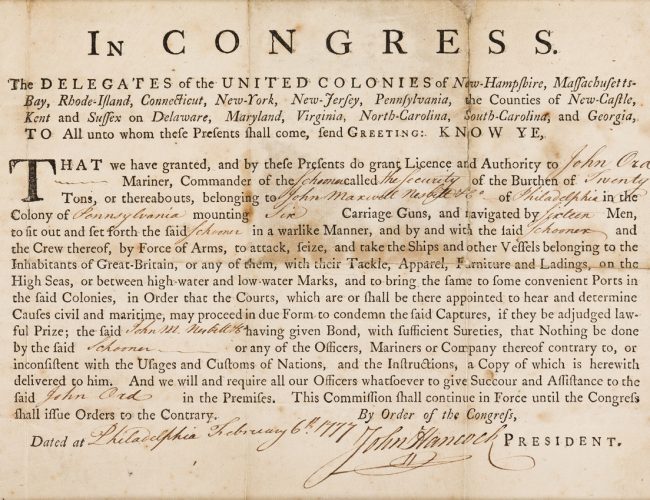 IN CONGRESS.
The DELEGATES of the UNITED COLONIES of New-Hampshire, Massachusetts-
Bay, Rhode-Island, Connecticut, New-York, New-Jersey, Pennsylvania, the Counties of New-Castle,
Kent and Sussex on Delaware, Maryland, Virginia, North-Carolina, South-Carolina, and Georgia,
TO All unto whom these Presents shall come, send GREETING: KNOW YE,
THAT we have granted, and by these Presents do grant Licence and Authority to John Ord
Mariner, Commander of the Schooner called The Security of the Burthen of Twenty
Tons, or thereabouts, belonging to John Maxwell Nesbitt & Co of Philadelphia in the
Colony of Pennsylvania mounting Six Carriage Guns, and navigated by sixteen Men,
to sit out and set forth the said Schooner in a warlike Manner, and by and with the said Schooner and
the Crew thereof, by Force of Arms, to attack, seize, and take the Ships and other Vessels belonging to the
Inhabitants of Great-Britain, or any of them, with their Tackle, Apparel, Furniture and Ladings, on the
High Seas, or between high-water and low-water Marks, and to bring the same to some convenient Ports in
the said Colonies, in Order that the Courts, which are or shall be there appointed to hear and determine
Causes civil and maritime, may proceed in due Form to condemn the said Captures, if they be adjudged law-
ful Prize; the said John M. Nesbitt & Co having given Bond, with sufficient Sureties, that Nothing be done
by the said Schooner or any of the Officers, Mariners or Company thereof contrary to, or
inconsistent with the Usages and Customs of Nations, and the Instructions, a Copy of which is herewith
delivered to him. And we will and require all our Officers whatsoever to give Succour and Assistance to the
said John Ord in the Premises. This Commission shall continue in Force until the Congress
shall issue Orders to the Contrary. By Order of the Congress,
Dated at Philadelphia February 6th 1777 John Hancock PRESIDENT.